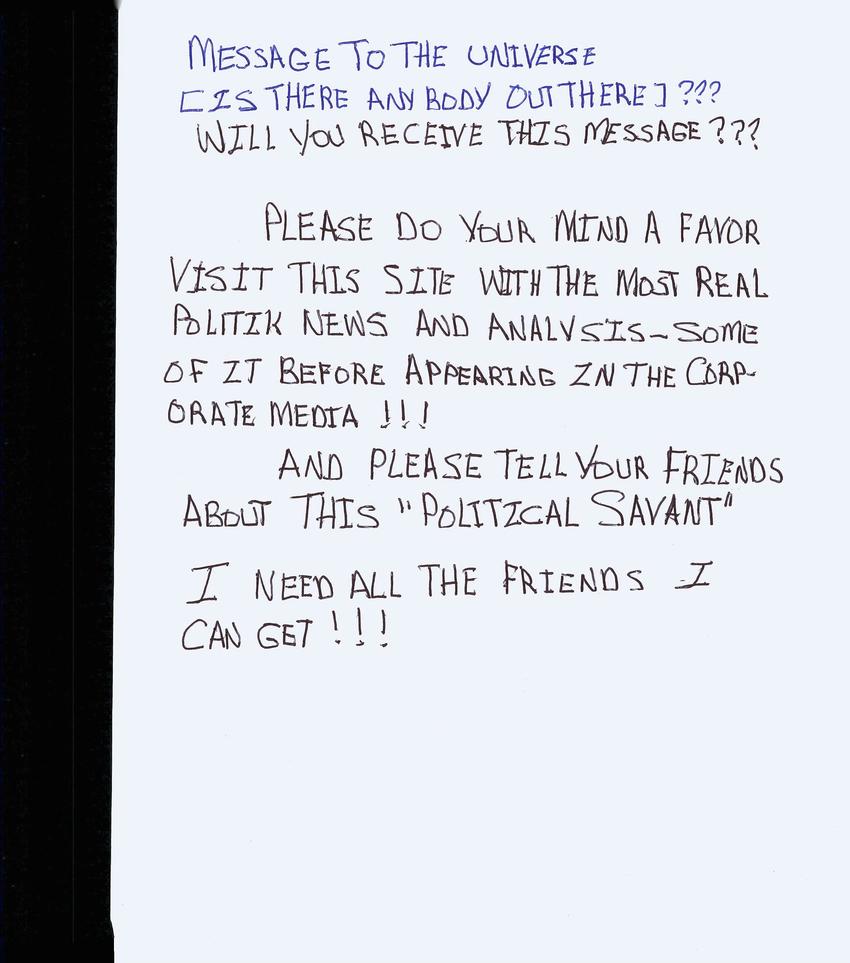 MESSAGE TO THE UNIVERSE
[IS THERE ANY BODY OUT THERE] ???
WILL YOU RECEIVE THIS MESSAGE ???
PLEASE DO YOUR MIND A FAVOR
VISIT THIS SITE WITH THE MOST REAL
POLITIK NEWS AND ANALYSIS - SOME
OF IT BEFORE APPEARING IN THE CORP-
ORATE MEDIA !!!
AND PLEASE TELL YOUR FRIENDS
ABOUT THIS "POLITICAL SAVANT"
I NEED ALL THE FRIENDS I
CAN GET !!!